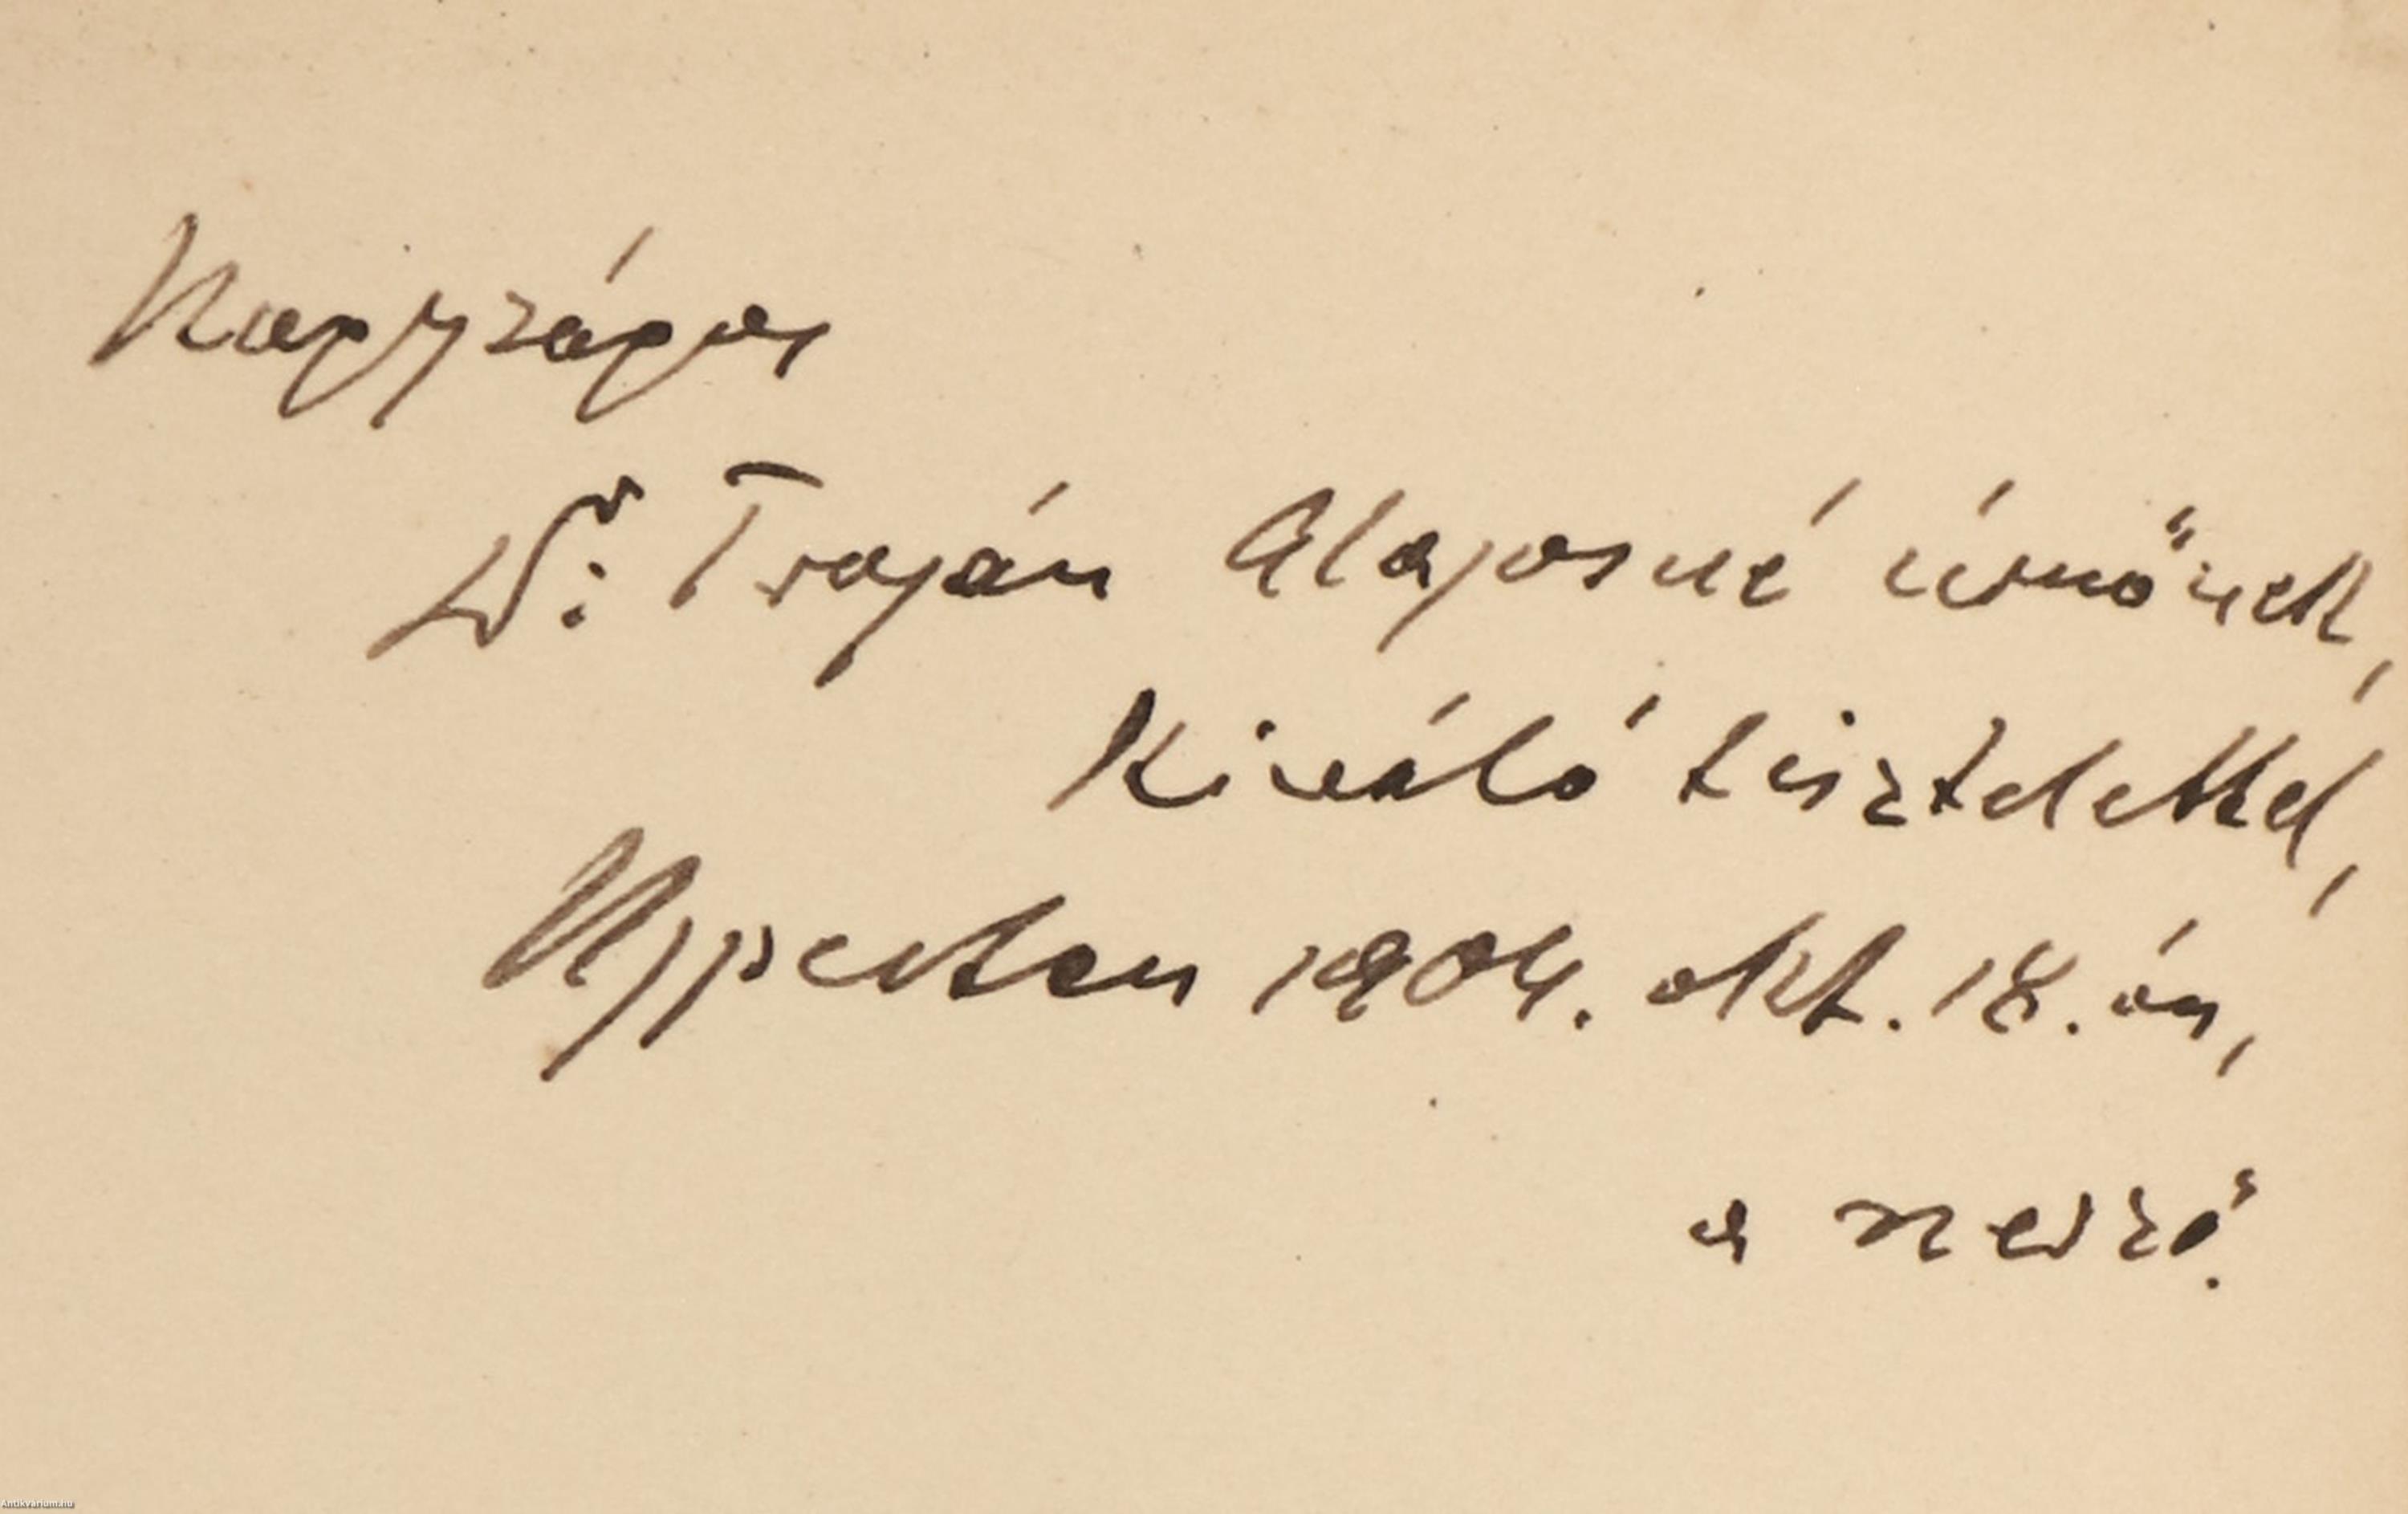 Nagyságos
Dr. Traján Alajosné úrnőnek,
Kiváló tisztelettel,
Ujpesten 1904. okt. 18.án,
a szerző.
Antikvarium.hu